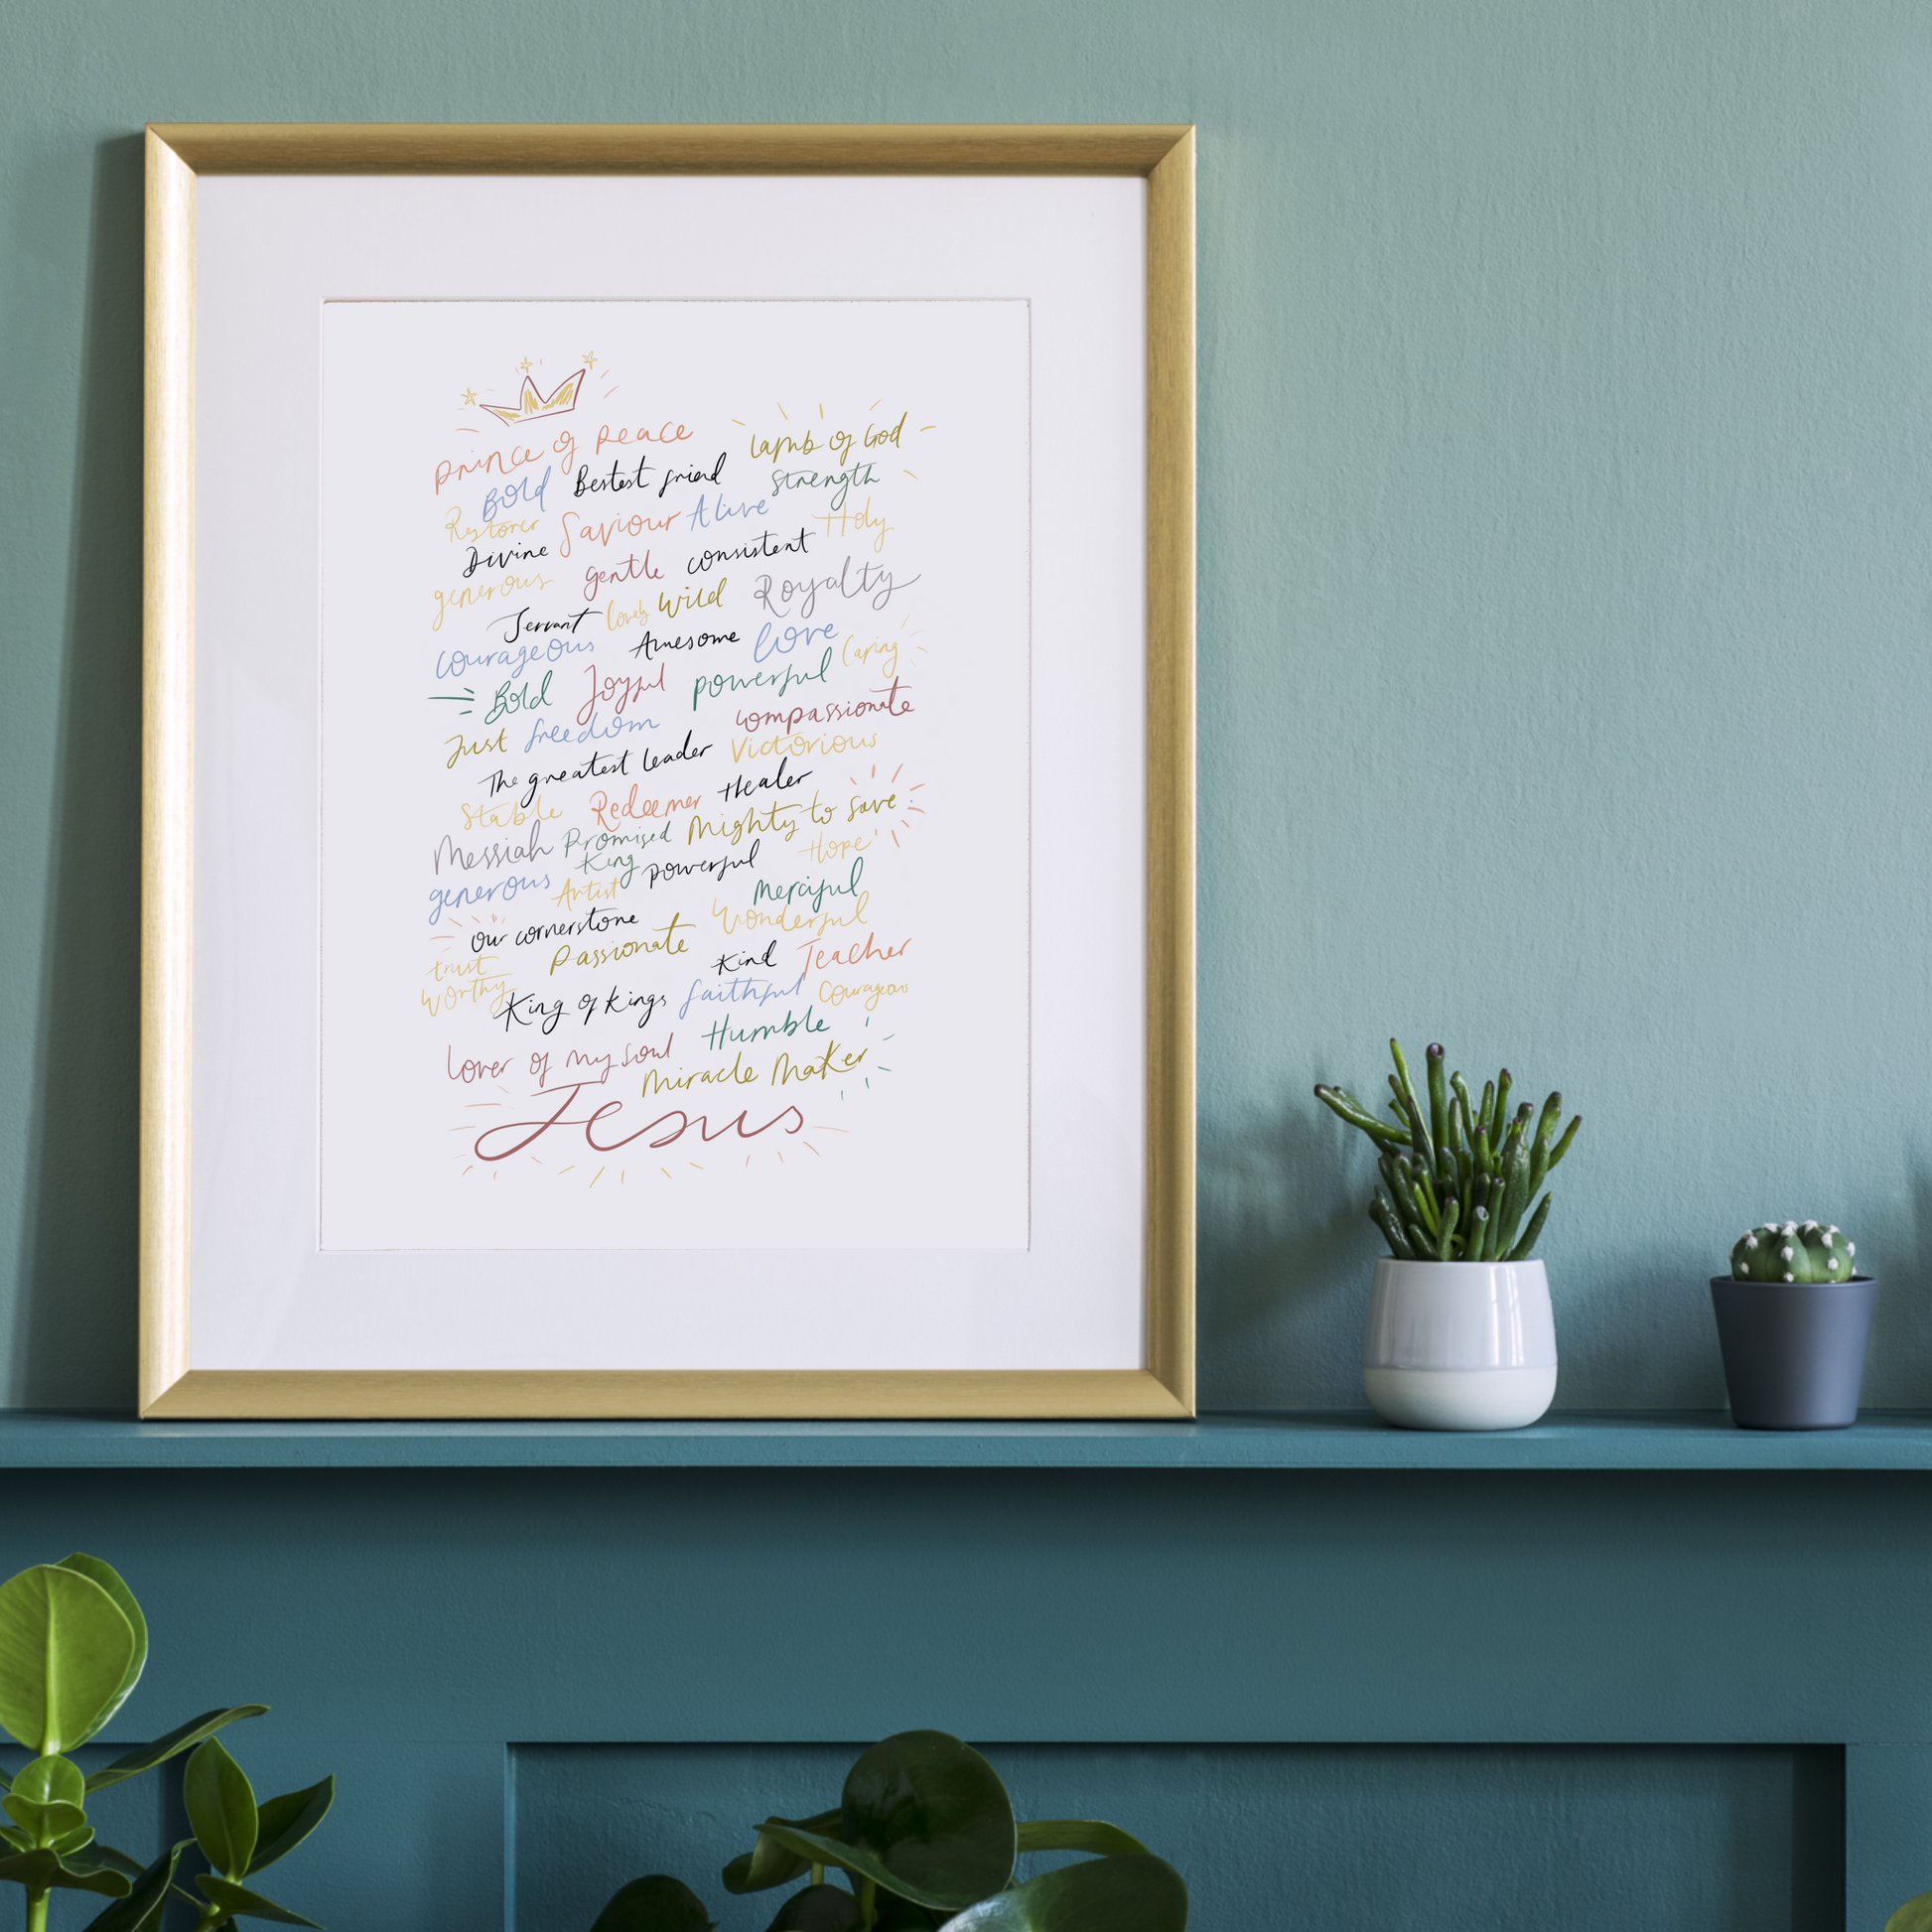 prince of peace Lamb of God
Bold Bestest friend Strength
Restorer Saviour Alive Holy
Divine gentle consistent
generous
Servant lovely Wild Royalty
Courageous Awesome love Caring
Bold Joyful powerful
Just freedom compassionate
The greatest leader Victorious
Stable Redeemer Healer
Messiah Promised King Mighty to save
generous Artist powerful Hope
Merciful
our cornerstone Wonderful
trust worthy Passionate
Kind Teacher
King of kings faithful Courageous
Lover of my soul Humble
Miracle Maker
Jesus